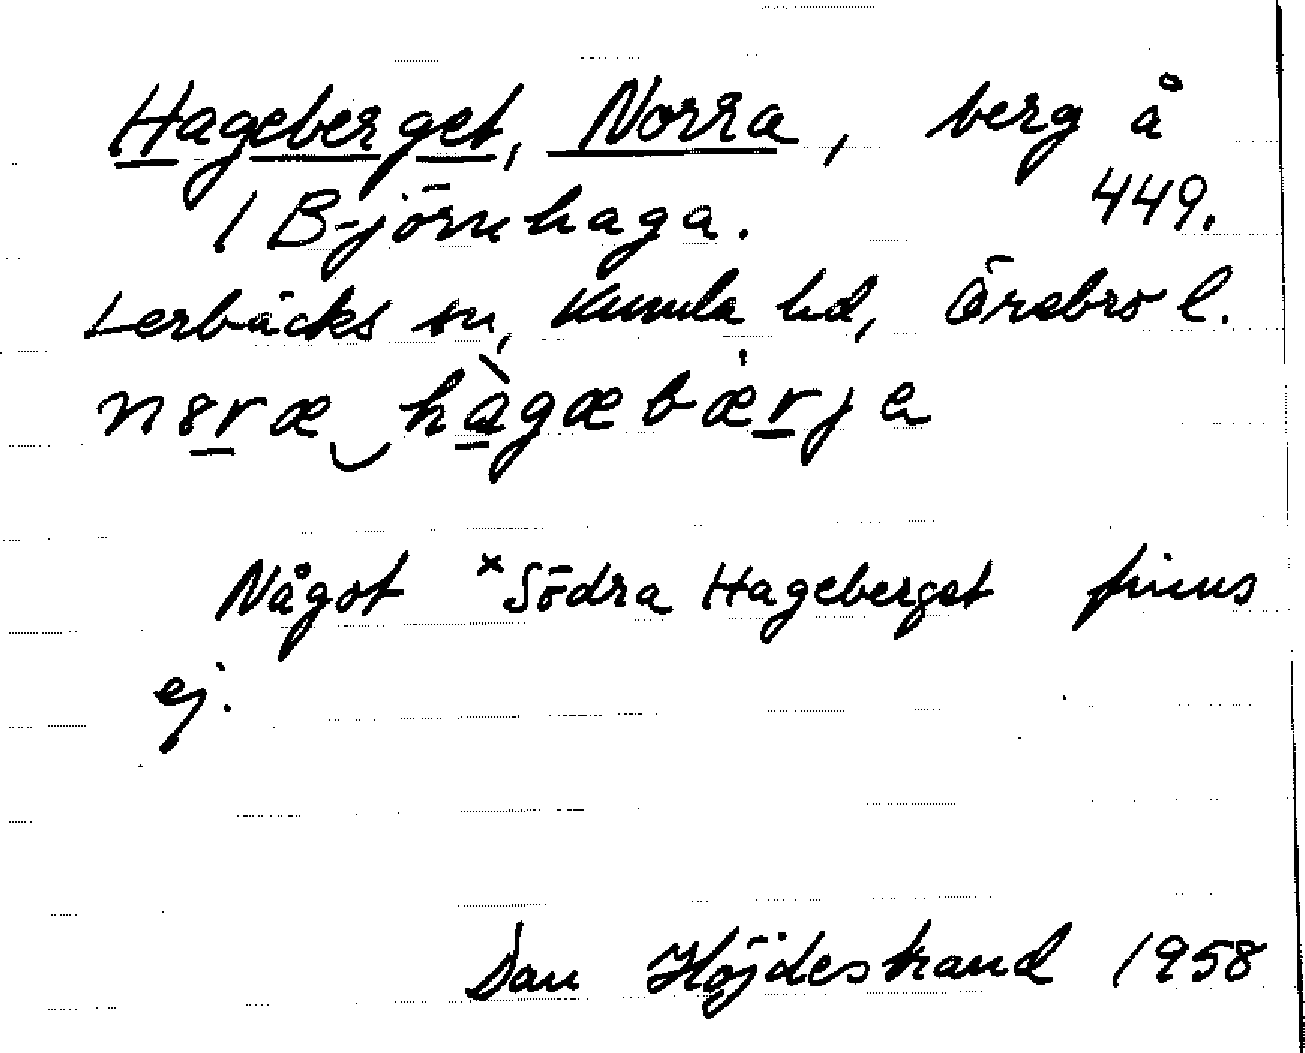 Hageberget, Norra, berg å
1 Björnhaga. 449.
Lerbäcks sn, Kumla hd, Örebro l.
n8ræ hàgæbærja
Något ×Södra Hageberget finns
ej.
Dan Höjdestrand 1958